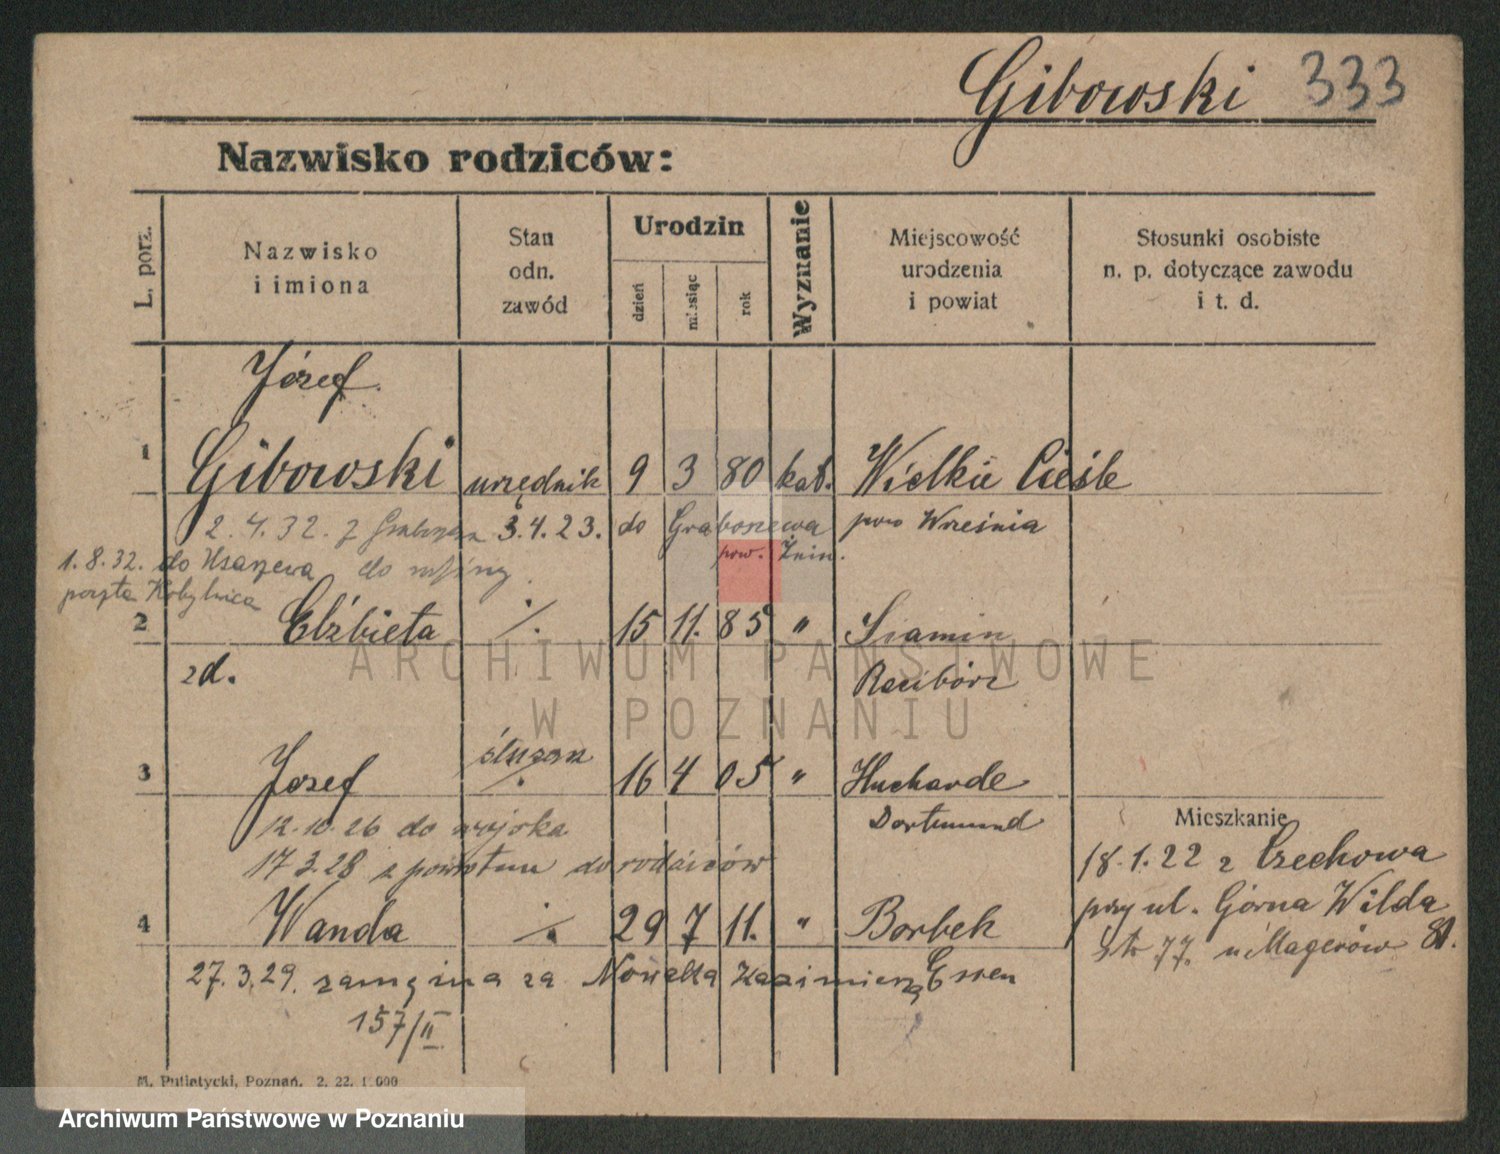 Gibowski 333
Nazwisko rodziców:
L. porz.
Nazwisko
i imiona
Stan
odn.
zawód
Urodzin
dzień
miesiąc
rok
Wyznanie
Miejscowość
urodzenia
i powiat
Stosunki osobiste
n. p. dotyczące zawodu
i t. d.
Józef
1 Gibowski urzędnik 9 3 80 kat. Wielkie Cieśle
2.4.32. z 3.4.23. do Graboszewa pow Września
1.8.32. do pow. Żnin.
poczta Kobylnica
2 Elżbieta ·/. 15 11. 85 " Siamin
zd. Racibórz
ślusarz
3 Jozef ·/. 16 4 05 " Huckarde
12.10.26 do wojska Dortmund
Mieszkanie
17 3.28 z powrotem do rodziców
18.1.22 z Czechowa
4 Wanda ·/. 29 7 11. " Borbek
przy ul. Górna Wilda
77. u Magerów 81.
27.3.29. zamężna za Nowaka Kazimierza Essen
157/II
M. Putiatycki, Poznań. 2. 22. 1.000
ARCHIWUM PAŃSTWOWE
W POZNANIU
Archiwum Państwowe w Poznaniu